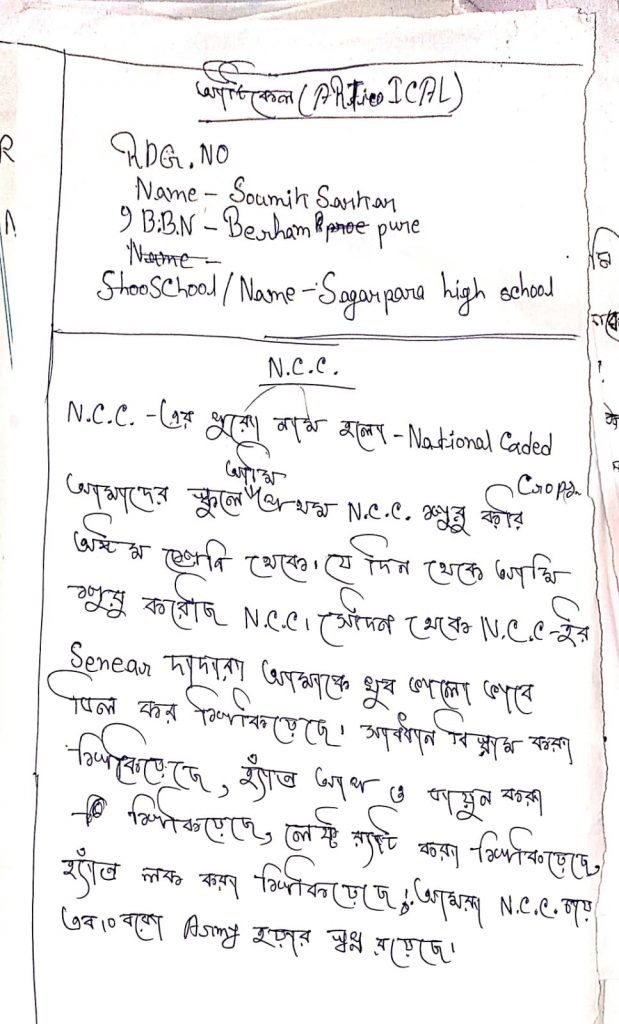 আর্টিকেল (ARTICAL)
RDG. NO
Name - Soumik Sarkar
9 B.BN - Berham pure
Name -
School / Name - Sagarpara high school
N.C.C.
N.C.C. - এর পুরো নাম হলো - National Caded
Crops
আমি
আমাদের স্কুলে প্রথম N.C.C. শুরু করি
অষ্টম শ্রেণি থেকে। যে দিন থেকে আমি
শুরু করেছি N.C.C। সেদিন থেকে N.C.C-ইর
Senear দাদারা আমাকে খুব ভালো ভাবে
ডিল কর শিখিয়েছে। সাবধান বিশ্রাম করা
শিখিয়েছে, হ্যাঁন্ড আপ ও ডায়ুন করা
শিখিয়েছে, লেফ্ট রাইট করা শিখিয়েছে,
হ্যাঁন্ড লক করা শিখিয়েছে। আমরা N.C.C.
Army হওয়ার স্বপ্ন রয়েছে।